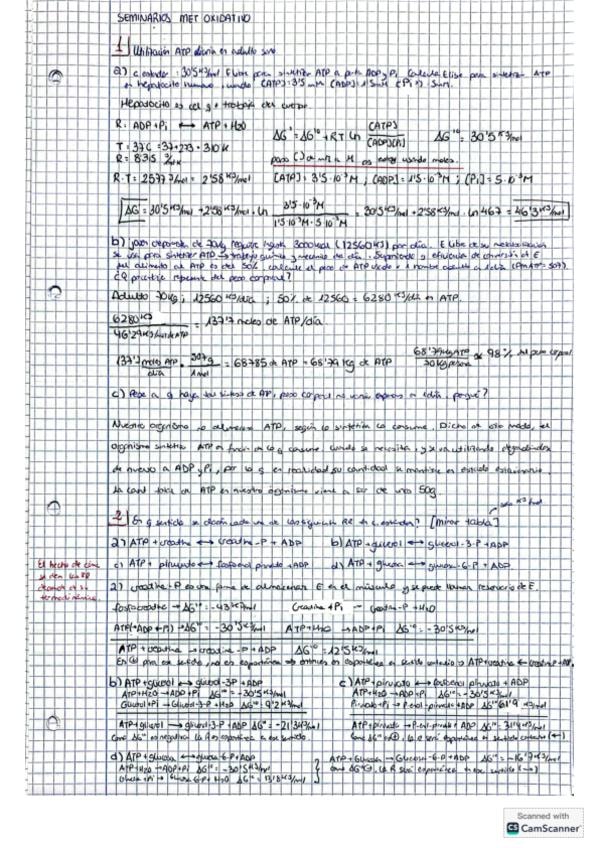 SEMINARIOS MET OXIDATIVO
1 Utilización ATP diaria en adulto sano
a) c. estándar: 30'5 KJ/mol E libre para sintetizar ATP a partir ADP y Pi. Calcula E libre para sintetizar ATP
en hepatocito humano, cuando [ATP]: 3'5 mM [ADP]: 1'5 mM [Pi]: 5mM.
Hepatocito es del q + trabaja del cuerpo.
R: ADP + Pi ⟷ ATP + H2O
ΔG' = ΔG'° + RT ln [ATP] / [ADP][Pi] ΔG'° = 30'5 KJ/mol
T = 37C = 37+273 = 310K
R = 8'315
paso () a M
R·T = 2577 J/mol = 2'58 KJ/mol [ATP] = 3'5·10⁻³M ; [ADP] = 1'5·10⁻³M ; [Pi] = 5·10⁻³M
ΔG = 30'5 KJ/mol + 2'58 KJ/mol · ln 3'5·10⁻³M / 1'5·10⁻³M · 5·10⁻³M = 30'5 KJ/mol + 2'58 KJ/mol · ln 467 = 46'3 KJ/mol
b) joven deportista de 70kg requiere ingesta 3000 kcal (12560 KJ) por día. E libre de su metabolización
se usa para sintetizar ATP → trabajo químico y mecánico del día. Suponiendo q eficiencia de conversión de E
del alimento al ATP es del 50%, calcule el peso de ATP (PmATP = 507).
¿Q porcentaje representa del peso corporal?
Adulto 70kg ; 12560 KJ/día ; 50% de 12560 = 6280 KJ/día en ATP.
6280 KJ / 46'29 KJ/mol de ATP = 137'7 moles de ATP/día
137'7 moles ATP/día · 507g/1mol = 68785 de ATP = 68'79 Kg de ATP 68'79 kg ATP / 70 kg persona ≈ 98% del peso corporal
c) Pese a q haya tal síntesis de ATP, peso corporal no varía ¿porqué?
Nuestro organismo no almacena ATP, según lo sintetiza lo consume. Dicho de otro modo, el
organismo sintetiza ATP en función de lo q consume, cuando se necesita, y se va utilizando degradándose
de nuevo a ADP y Pi, por lo q en realidad su cantidad se mantiene en estado estacionario.
La cant total de ATP en nuestro organismo viene a ser de unos 50g.
2 En q sentido se desarrollada una de las siguientes RR en c. estándar? [mirar tabla]
a) ATP + creatina ⟷ creatina-P + ADP b) ATP + glicerol ⟷ glicerol-3-P + ADP
c) ATP + piruvato ⟷ fosfoenol piruvato + ADP d) ATP + glucosa ⟷ glucosa-6-P + ADP
El hecho de cómo
se den las RR
depende de su
termodinámica.
a) creatina-P es una forma de almacenar E en el músculo y se puede llamar reservorio de E.
fosfocreatina → ΔG'° = -43 KJ/mol Creatina + Pi → Creatina-P + H2O
ATP(→ADP + Pi) → ΔG'° = -30'5 KJ/mol ATP + H2O → ADP + Pi ΔG'° = -30'5 KJ/mol
ATP + creatina → creatina-P + ADP ΔG'° = 12'5 KJ/mol
En ⊕ para ese sentido, no es espontánea → entonces es espontánea en sentido contrario → ATP + creatina ⟷ creatina-P + ADP.
b) ATP + glicerol ⟷ glicerol-3P + ADP
ATP + H2O → ADP + Pi ΔG'° = -30'5 KJ/mol
Glicerol + Pi → Glicerol-3-P + H2O ΔG'° = 9'2 KJ/mol
ATP + glicerol → glicerol-3-P + ADP ΔG'° = -21'3 KJ/mol
Como ΔG'° es negativa la R es espontánea en ese sentido.
c) ATP + piruvato ⟷ fosfoenol piruvato + ADP
ATP + H2O → ADP + Pi ΔG'° = -30'5 KJ/mol
Piruvato + Pi → P-enol-piruvato + H2O ΔG'° 61'9 KJ/mol
ATP + piruvato → P-enol-piruvato + ADP ΔG'° = 31'4 KJ/mol
Como ΔG'° = ⊕, la R será espontánea en sentido contrario (←)
d) ATP + glucosa ⟷ glucosa-6-P + ADP
ATP + H2O → ADP + Pi ΔG'° = -30'5 KJ/mol
Glucosa + Pi → Glucosa-6-P + H2O ΔG'° = 13'8 KJ/mol
ATP + Glucosa → Glucosa-6-P + ADP ΔG'° = -16'7 KJ/mol
Como ΔG'° ⊖, la R será espontánea en ese sentido (→)
Scanned with
CS CamScanner